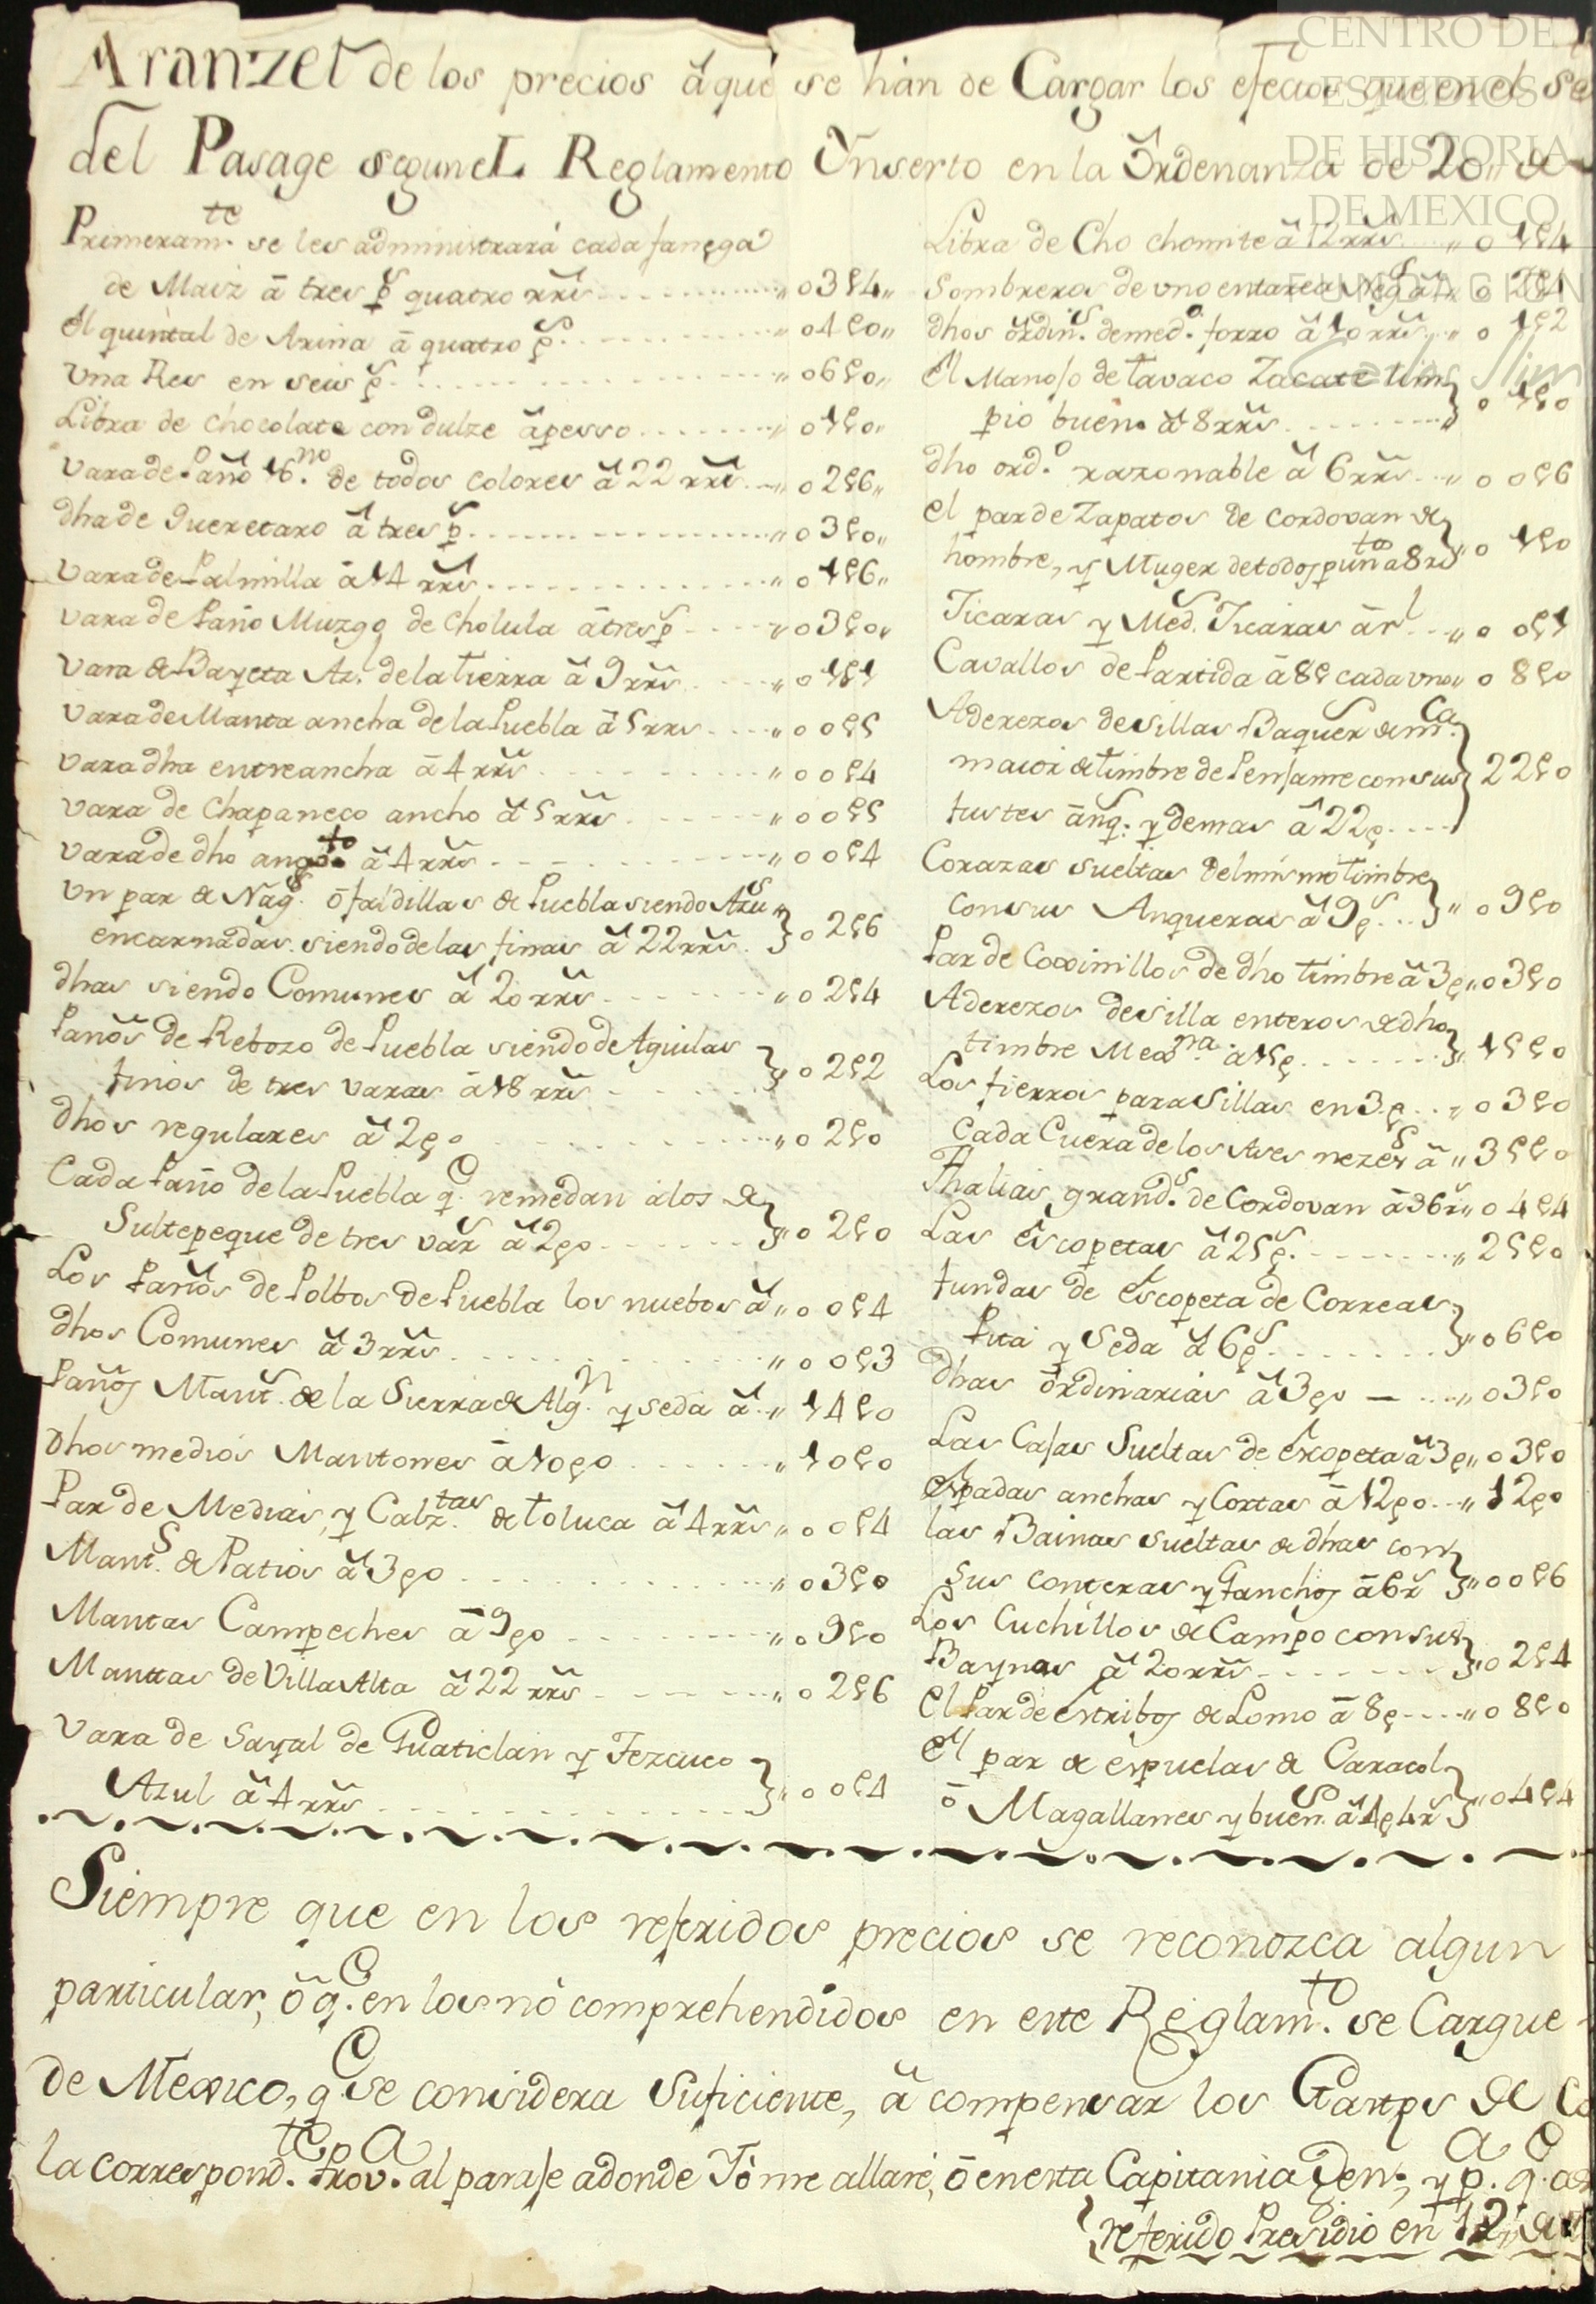 Aranzel de los precios â que se hán de Cargar los efectos que en el Se
del Pasage segun eL Reglamento Ynserto en la Ordenanza de 20,, de
Primeram.te se les administrará cada fanega
de Maiz â tres p.s quatro rr.s ,, 0 3 ς 4 ,,
el quintal de Arina â quatro p.s ,, 0 4 ς 0 ,,
Una Res en seis p.s ,, 0 6 ς 0 ,,
Libra de chocolate con dulze â pesso ,, 0 1 ς 0 ,,
Vara de Paño 16.no de todos colores â 22 rr.s ,, 0 2 ς 6 ,,
dha de Queretaro â tres p.s ,, 0 3 ς 0 ,,
Vara de Palmilla â 14 rr.s ,, 0 1 ς 6 ,,
Vara de Paño Muzgo de Cholula â tres p.s ,, 0 3 ς 0 ,,
Vara de Bayeta Az.l de la tierra â 9 rr.s ,, 0 1 ς 1
Vara de Manta ancha de la Puebla â 5 rr.s ,, 0 0 ς 5
Vara dha entreancha â 4 rr.s ,, 0 0 ς 4
Vara de Chapaneco ancho â 5 rr.s ,, 0 0 ς 5
Vara de dho angos.to â 4 rr.s ,, 0 0 ς 4
Un par de Nag.s ô faldillas de Puebla siendo Azu.s
encarnadas siendo de las finas â 22 rr.s } 0 2 ς 6
dhas siendo Comunes â 20 rr.s ,, 0 2 ς 4
Paños de Rebozo de Puebla siendo de Aguilas
finos de tres varas â 18 rr.s } ,, 0 2 ς 2
dhos regulares â 2 p.s ,, 0 2 ς 0
Cada Paño de la Puebla q.e remedan â los de
Sultepeque de tres var.s â 2 p.s } ,, 0 2 ς 0
Los Paños de Polbos de Puebla los nuebos â ,, 0 0 ς 4
dhos Comunes â 3 rr.s ,, 0 0 ς 3
Paños Mant.s de la Sierra de Alg.n y seda â ,, 1 4 ς 0
dhos medios Mantones â 10 p.s ,, 1 0 ς 0
Par de Medias, y Calz.tas de toluca â 4 rr.s ,, 0 0 ς 4
Mant.s de Patios â 3 p.s ,, 0 3 ς 0
Mantas Campeches â 9 p.s ,, 0 9 ς 0
Mantas de Villa Alta â 22 rr.s ,, 0 2 ς 6
Vara de Sayal de Guaticlan y Tezcuco
Azul â 4 rr.s } ,, 0 0 ς 4
Libra de Cho chomite â 12 rr.s ,, 0 1 ς 4
Sombreros de vno entarea
dhos ôrdin.s de med.o forro â 10 rr.s ,, 0 1 ς 2
el Manojo de tavaco Zacate lim
pio bueno â 8 rr.s } 0 1 ς 0
dho ord.o razonable â 6 rr.s ,, 0 0 ς 6
el par de Zapatos de Cordovan de
hombre, y Muger de todos punt.os â 8 r.s } ,, 0 1 ς 0
Jicaras y Med.s Jicaras â r.l ,, 0 0 ς 1
Cavallos de Partida â 8 p.s cada vno ,, 0 8 ς 0
Aderezos de Sillas Baquer.s de m.ca
maior de timbre de Pensam.e con sus
fustes ânq.s y demas â 22 p.s } 2 2 ς 0
Corazas sueltas del mismo timbre
con sus Anqueras â 9 p.s } ,, 0 9 ς 0
Par de Coxinillos de dho timbre â 3 p.s ,, 0 3 ς 0
Aderezos de Silla enteros de dho
timbre Med.na â 15 p.s } ,, 1 5 ς 0
Los fierros para Sillas en 3 p.s ,, 0 3 ς 0
Cada Cuera de los Ases nezes.s â ,, 3 5 ς 0
Thalias, grand.s de Cordovan â 36 r.s ,, 0 4 ς 4
Las êscopetas â 25 p.s ,, 2 5 ς 0
fundas de êscopeta de Correas,
Pita y Seda â 6 p.s } ,, 0 6 ς 0
Dhas ôrdinarias â 3 p.s ,, 0 3 ς 0
Las Cajas Sueltas de êscopeta â 3 p.s ,, 0 3 ς 0
espadas anchas y Cortas â 12 p.s ,, 1 2 ς 0
las Bainas sueltas de dhas con
sus conteras y Ganchos â 6 r.s } ,, 0 0 ς 6
Los Cuchillos de Campo con sus
Baynas â 20 rr.s } ,, 0 2 ς 4
el Par de êstribos de Lomo â 8 p.s ,, 0 8 ς 0
el par de espuelas de Caracol
ô Magallanes y buen.s â 4 p.s 4 r.s } ,, 0 4 ς 4
Siempre que en los referidos precios se reconozca algun
particular, ô q.e en los nó comprehendidos en este Reglam.to se Cargue
de Mexico, q.e se considera Suficiente, â compensar los Gastos de Co
la correspond.te Prov.a al paraje adonde Yó me allaré, ô en esta Capitania Gen.l, y p.a q.e
referido Presidio en 12 de
CENTRO DE
ESTUDIOS
DE HISTORIA
DE MEXICO
FUNDACION
Carlos Slim